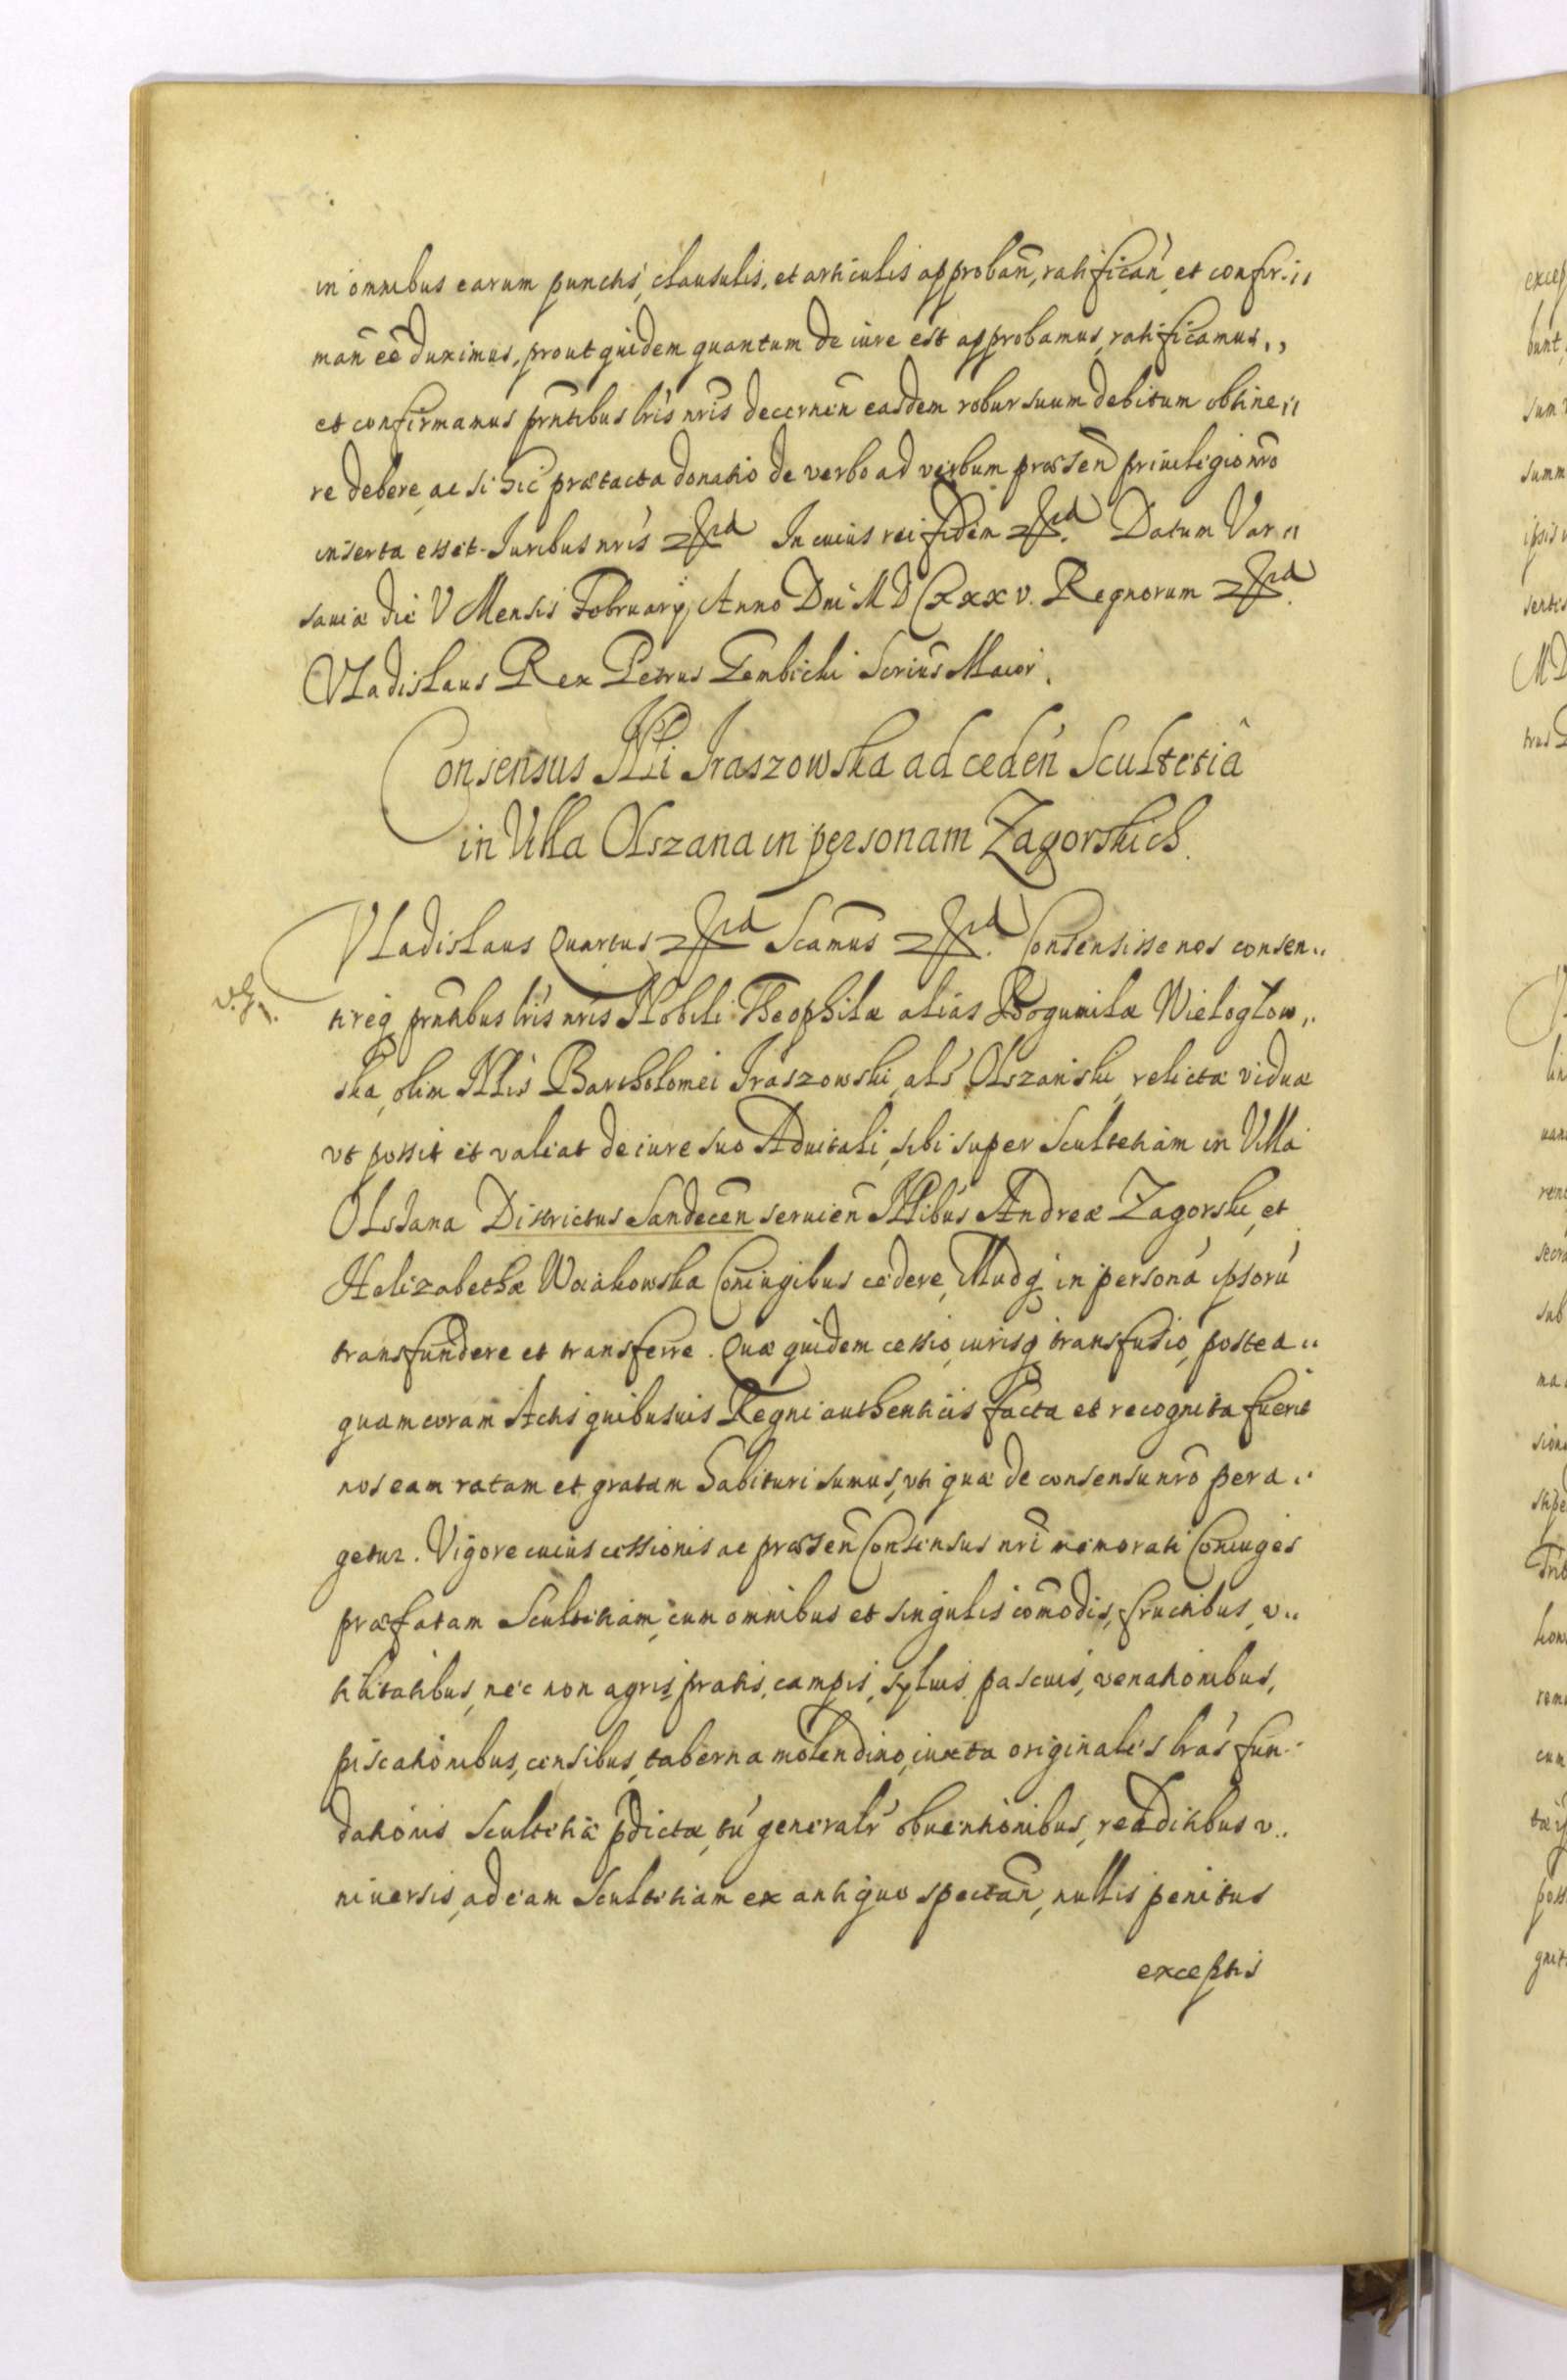 in omnibus earum punctis, clausulis, et articulis approban̄, ratifican̄, et confir„
man̄ eē duximus, prout quidem quantum de iure est approbamus, ratificamus„
et confirmamus prn̄tibus lris nris decernen̄ easdem robur suum debitum obtine„
re debere, ac si hic prætacta donatio de verbo ad verbum præsen̄ priuilegio nrō
inserta esset. Iuribus nris In cuius rei fidem Datum Var„
sauiæ die V Mensis February Anno Dni MDCXXXV. Regnorum
Vladislaus Rex Petrus Gembicki Scriūs Maior.
Consensus Nli Iraszowska ad ceden̄ Scultetiā
in Villa Olszana in personam Zagorskich.
Vladislaus Quartus Scamus Consensisse nos consen„
tireq prn̄tibus lris nris Nobili Theophilæ alias Bogumilæ Wielogłow„
ska, olim Nlis Bartholomei Iraszowski, als Olszański, relictæ viduæ
vt possit et valeat de iure suo Aduitali, sibi super Scultetiam in Villa
Olszana Districtus Sandecen̄ seruien̄ Nlibus Andreæ Zagorski, et
Helizabethæ Woiakowska Coniugibus cedere, Illudq in personā ipsorū
transfundere et transferre. Quæ quidem cessio, iurisq transfusio, postea„
quam coram Actis quibusuis Regni authenticis facta et recognita fuerit
nos eam ratam et gratam habituri sumus, vti quæ de consensu nrō pera„
getur. Vigore cuius cessionis ac præsen̄ Consensus nri memorati Coniuges
præfatam Scultetiam, cum omnibus et singulis com̄odis, fructibus, v„
tilitatibus, nec non agris, pratis, campis, syluis, pascuis, venationibus,
piscationibus, censibus, taberna molendino, iuxta originales lras fun„
dationis Scultetiæ pdictæ, tū generalr obuentionibus, redditibus v„
niuersis, ad eam Scultetiam ex antiquo spectan̄, nullis penitus
exceptis